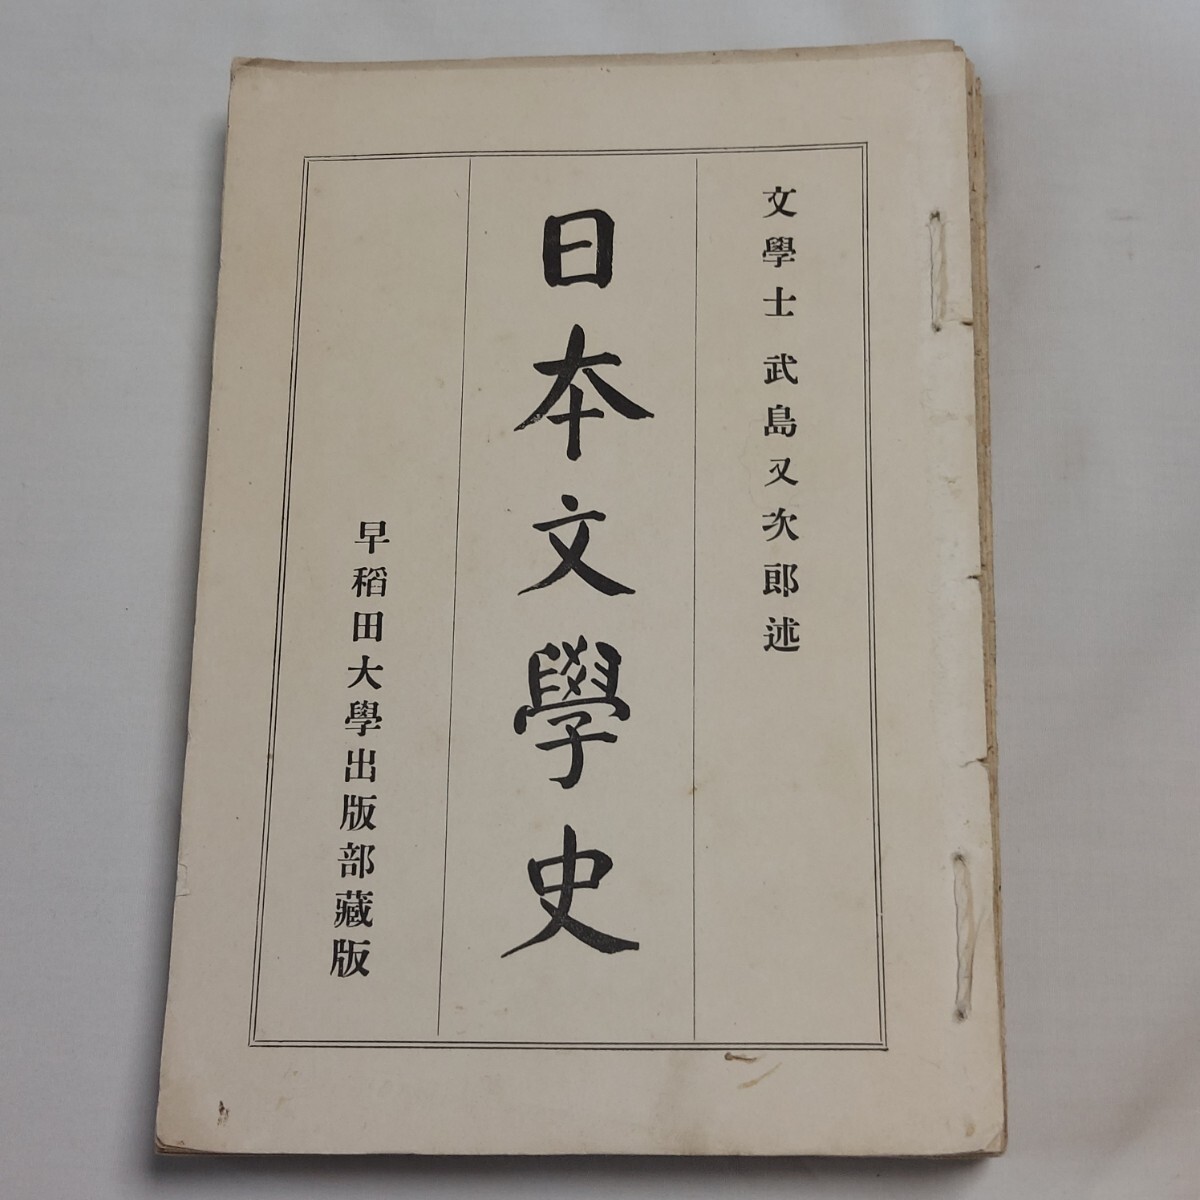 文學士 武島又次郎述
日本文學史
早稻田大學出版部藏版